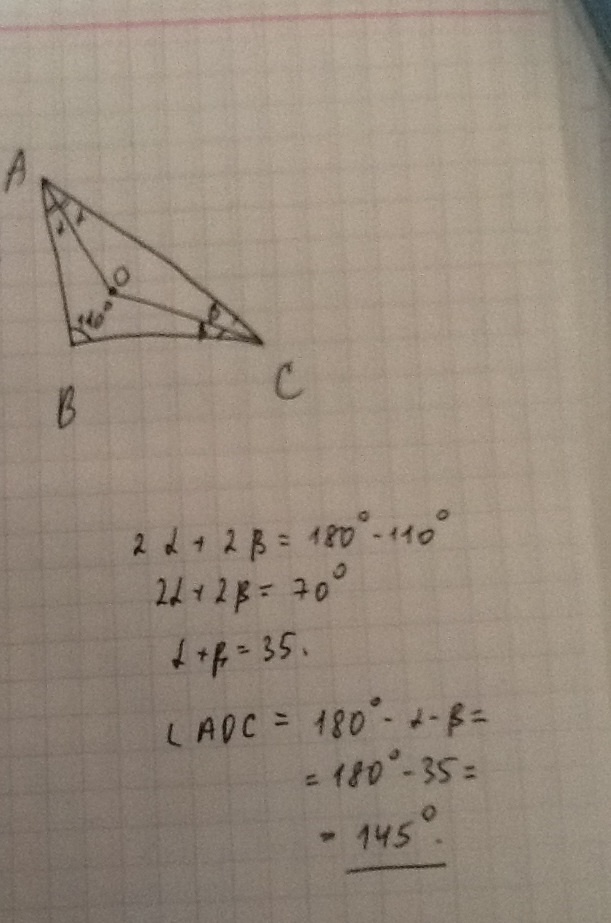 A
α
α
O
110°
β
β
B
C
2α + 2β = 180° - 110°
2α + 2β = 70°
α + β = 35.
∠AOC = 180° - α - β =
= 180° - 35 =
= 145°.